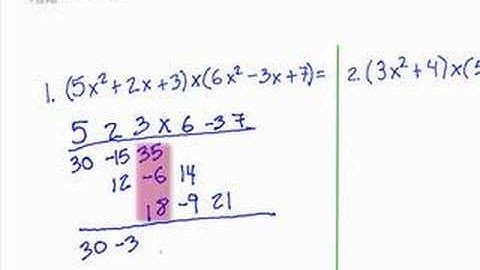 1. (5x²+2x+3)x(6x²-3x+7)=
2. (3x²+4)x(5
5 2 3 x 6 -3 7
30 -15 35
12 -6 14
18 -9 21
30 -3